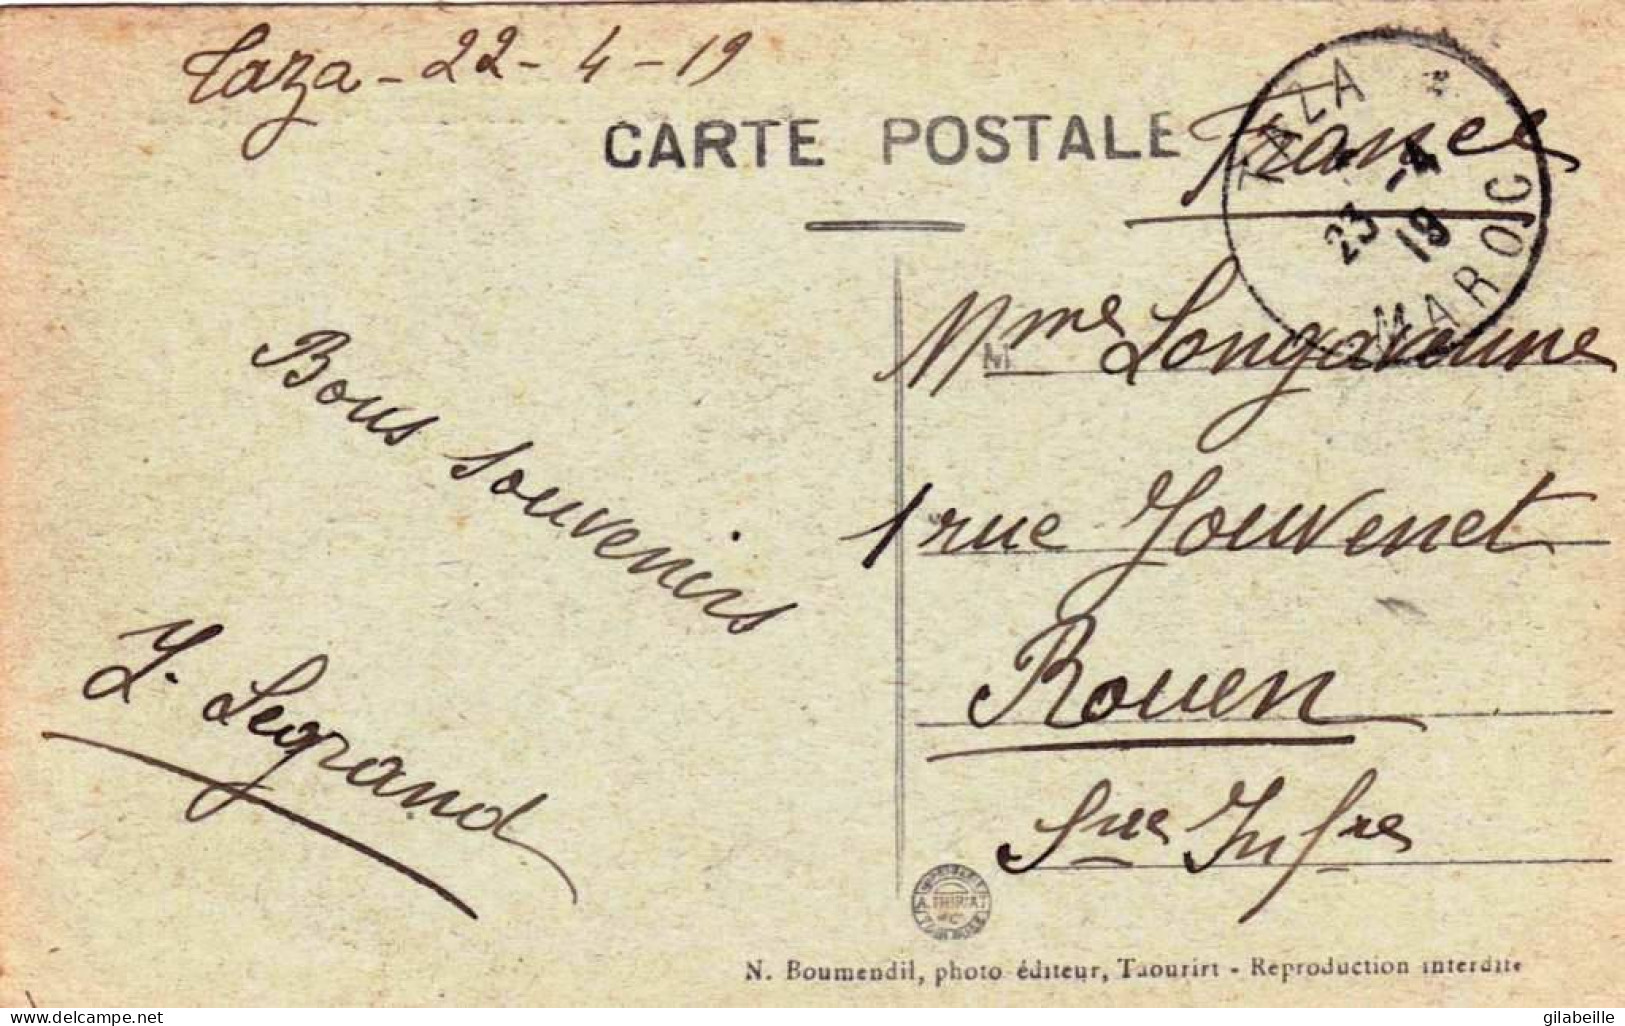 Taza - 22 - 4 - 19
CARTE POSTALE
France
TAZA * MAROC
23 -4
19
Bons souvenirs
Y. Legrand
M
Mme Longavenne
1 rue Jouvenet
Rouen
Sne Infre
A. THIRIAT
N. Boumendil, photo éditeur, Taourirt - Reproduction interdite
delcampe.net
gilabeille